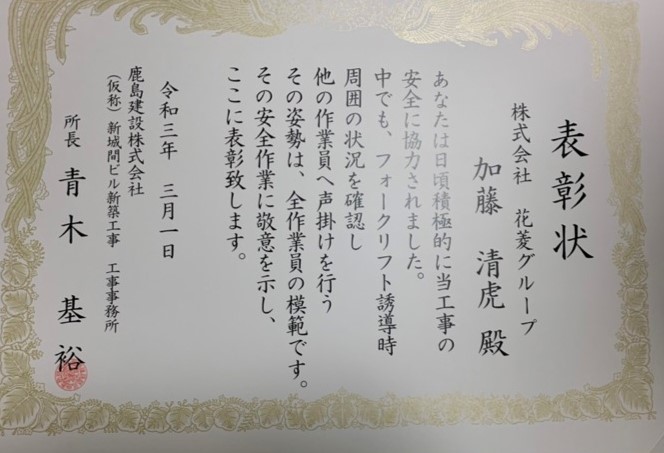 表彰状
株式会社 花菱グループ
加藤 清虎 殿
あなたは日頃積極的に当工事の
安全に協力されました。
中でも、フォークリフト誘導時
周囲の状況を確認し
他の作業員へ声掛けを行う
その姿勢は、全作業員の模範です。
その安全作業に敬意を示し、
ここに表彰致します。
令和三年 三月一日
鹿島建設株式会社
(仮称)新城間ビル新築工事 工事事務所
所長 青木 基裕